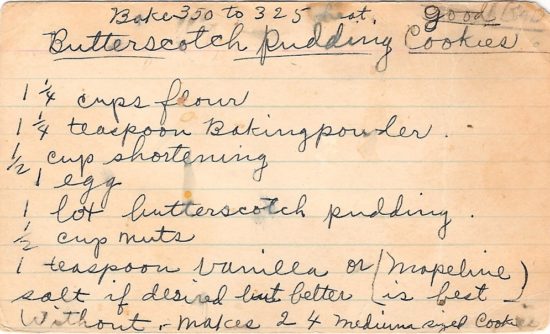 Bake 350 to 325 heat. Good
Butterscotch Pudding Cookies
1 1/4 cups flour
1 1/4 teaspoon Bakingpowder.
1/2 cup shortening
1 egg
1 box butterscotch pudding.
1/2 cup nuts
1 teaspoon vanilla or (Mapeline
salt if desired but better (is best)
without - makes 24 medium sized Cookies